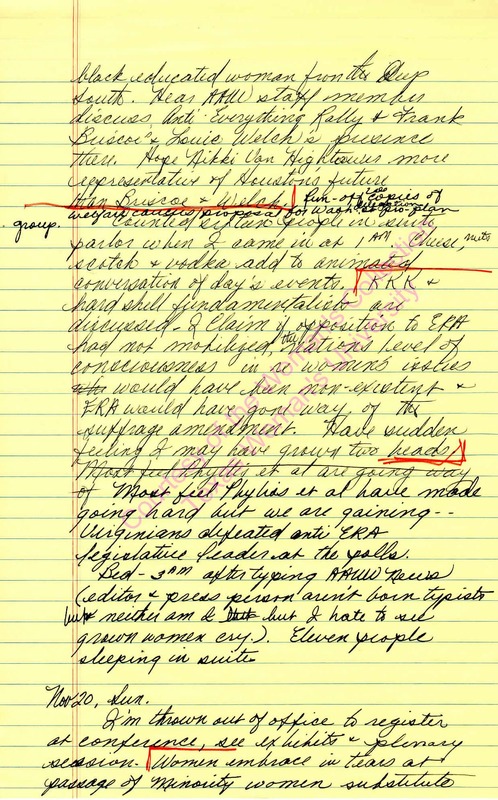 black educated woman from the Deep
South. Hear AAUW staff member
discuss Anti-Everything Rally & Frank
Briscoe's & Louie Welch's presence
there. Hope Nikki Van Hightower is more
representative of Houston's future
than Briscoe & Welch. Run-off copies of
welfare caucus proposal for Wash. pro-plan
group. Counted sixteen people in suite
parlor when I came in at 1 AM. Cheese, nuts
scotch & vodka add to animated
conversation of day's events. KKK &
hard shell fundamentalists are
discussed - I claim if opposition to ERA
had not mobilized, the nation's level of
consciousness in re women's issues
would have been non-existent &
ERA would have gone way of the
suffrage amendment. Have sudden
feeling I may have grown two heads.
Most feel Phyllis et al are going way
of Most feel Phyllis et al have made
going hard but we are gaining--
Virginians defeated anti ERA
legislative leader at the polls.
Bed - 3 AM after typing AAUW News
(editor & press person aren't born typists
but neither am I but I hate to see
grown women cry.). Eleven people
sleeping in suite
Nov 20, Sun.
I'm thrown out of office to register
at conference, see exhibits & plenary
session. Women embrace in tears at
passage of Minority women substitute
Courtesy of the Woman's Collection
Texas Woman's University